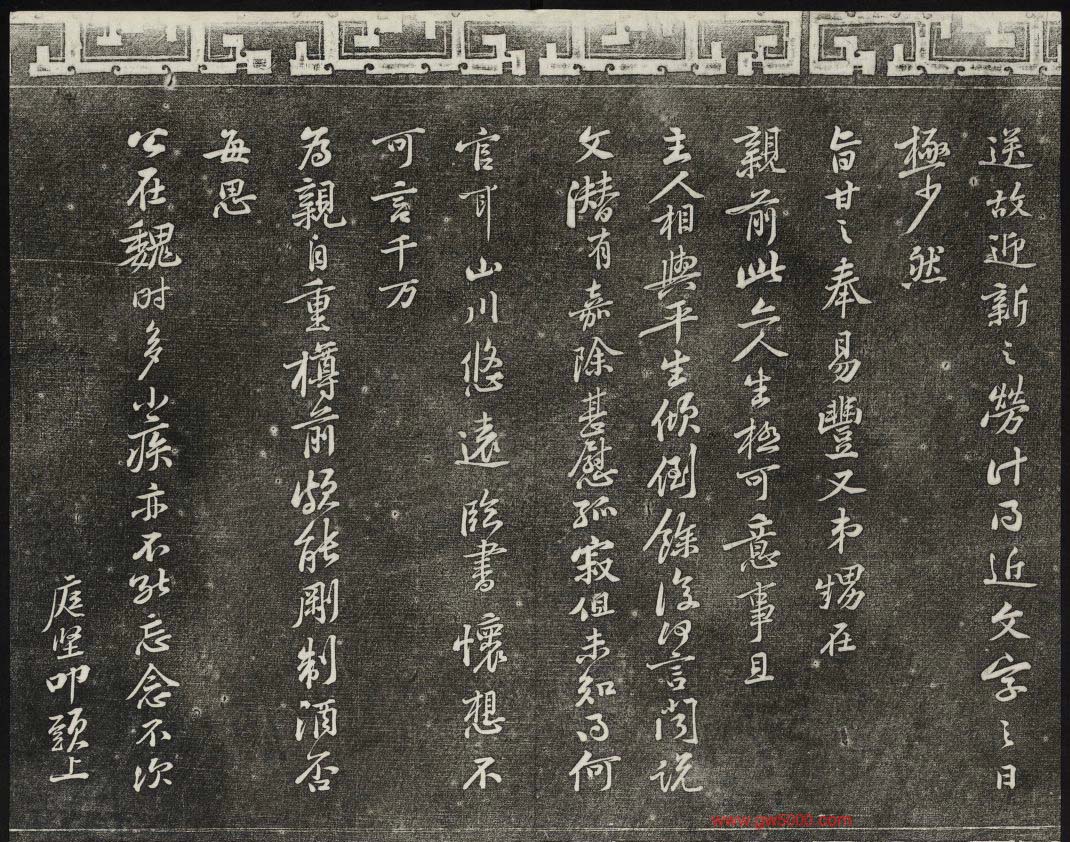 送故迎新之勞計得近文字之日
極少然
旨甘之奉易豐又弟甥在
親前此亦人生極可意事且
主人相與平生傾倒餘復何言聞說
文潛有嘉除甚慰孤寂但未知得何
官耳山川悠遠臨書懷想不
可言千万
為親自重樽前頗能剛制酒否
每思
公在魏时多小疾亦不能忘念不次
庭坚叩頭上
www.gw5000.com